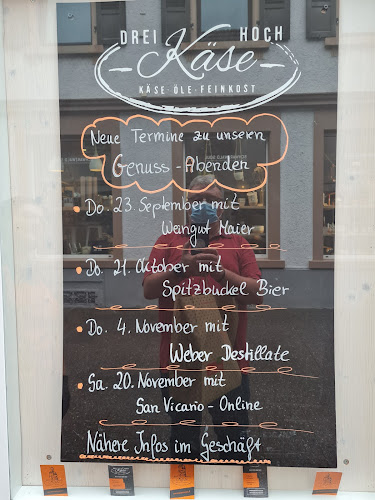 DREI HOCH
Käse
KÄSE·ÖLE·FEINKOST
Neue Termine zu unseren
Genuss-Abenden
Do. 23. September mit
Weingut Maier
Do. 21. Oktober mit
Spitzbuckel Bier
Do. 4. November mit
Weber Destillate
Sa. 20. November mit
San Vicario - Online
Nähere Infos im Geschäft